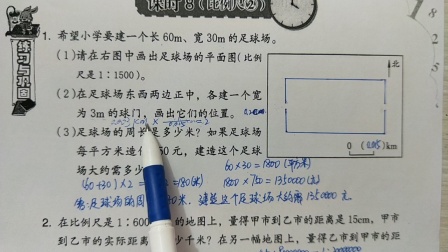 课时8(比例尺②)
练习与巩固
1. 希望小学要建一个长60m、宽30m的足球场。
(1)请在右图中画出足球场的平面图(比例
尺是1:1500)。
北
(2)在足球场东西两边正中,各建一个宽
为3m的球门,画出它们的位置。
(3)足球场的周长是多少米?如果足球场
每平方米造价 50元,建造这个足球
场大约需多
0 (0.015)km
60×30=1800(平方米)
(60+30)×2 =180(米)
1800×750=1350000(元)
答:足球场的周 米,建造这个足球场大约需1350000元
2. 在比例尺是1:600 的地图上,量得甲市到乙市的距离是15cm,甲市
到乙市的实际距离 少千米?在另一幅地图上,量得甲市到乙市的